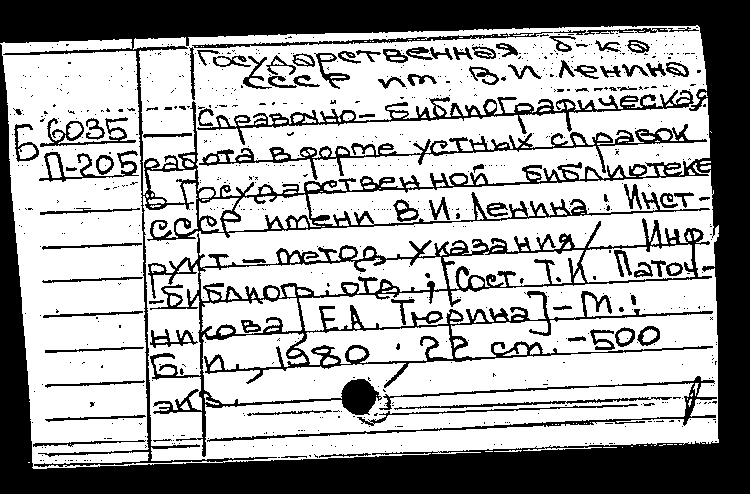 Государственная б-ка
СССР им. В.И. Ленина.
Справочно-библиографическая
Б 6035
П-205
работа в форме устных справок
в Государственной библиотеке
СССР имени В.И. Ленина : Инст-
рукт. - метод. указания / Инф.
-библиогр. отд. ; [Сост. Т.И. Паточ-
никова, Е.А. Тюрина] - М. :
Б. и., 1980. 22 ст. - 500
экз.